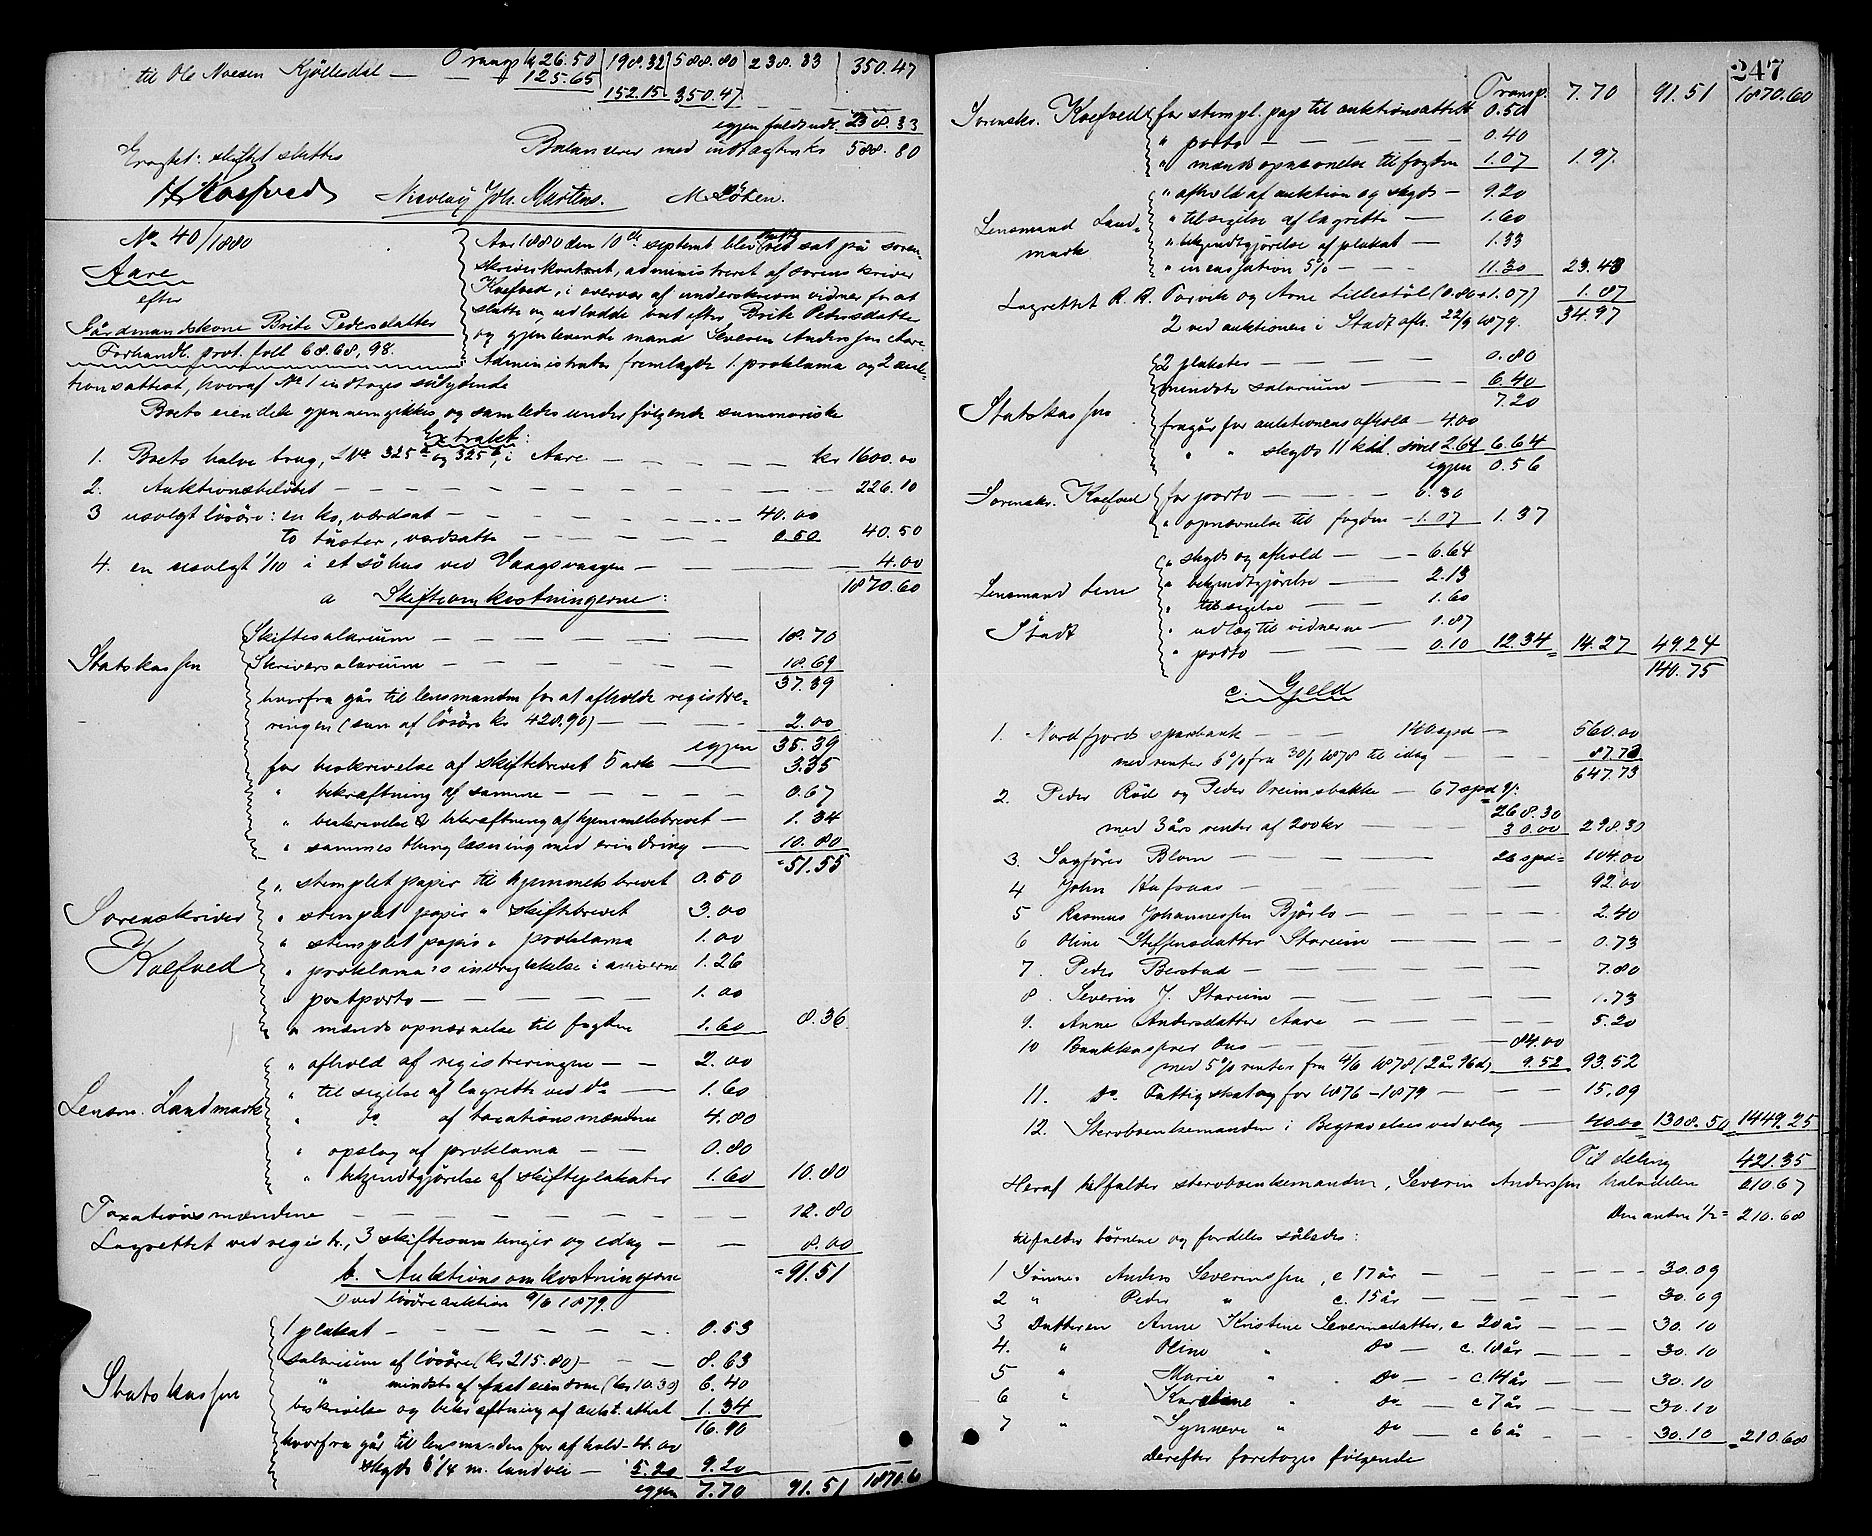 Transp. 426.50 198.32 588.80 238.33 350.47
til Ole Nielsen Kjöllesdal — 125.65
152.15 350.47
igjen fuldt ud. 238.33
Balancerer med indtægten kr 588.80
Eragtet: skiftet sluttes
Koefoed Nicolay Joh. Martens. M. Löken.
No 40/1880
Aare
efter
Gårdmandskone Brite Pedersdatter
Forhandl. prot. foll 68.68, 98.
Aar 1880 den 10de septemb. blev skifteret sat på soren-
skriverkontoret, administreret af sorenskriver
Koefoed, i overvær af underskrevne vidner for at
slutte og udlodde boet efter Brite Pedersdatter
og gjenlevende mand Severin Anderssen Aare.
Administrator fremlagde 1 proklama og 2 auk-
tionsattest, hvoraf No 1 indtages sålydende
Boets eiendele gjennemgikkes og samledes under følgende summariske
Extrakt:
1. Boets halve brug, LNo 325a og 325b, i Aare — kr 1600.00
2. Auktionsbeløbet — 226.10
3 usolgt lösöre: en ko, værdsat — 40.00
to tüster, værdsatte — 0.50 40.50
4. en usolgt 1/10 i et söhus ved Vaagsvaagen — 4.00
1870.60
a Skifteomkostningerne:
Statskassen
Skiftesalarium — 18.70
Skriversalarium — 18.69
37.39
hvorfra går til lensmanden for at afholde registre-
ringen (sum af lösöre kr 428.90) — 2.00
igjen 35.39
for beskrivelse af skiftebrevet 5 ark — 3.35
" bekræftning af samme — 0.67
" beskrivelse & bekræftning af hjemmelsbrevet — 1.34
" sammes thinglæsning med erindring — 10.80
51.55
Sorenskriver
Koefoed
" stemplet papir til hjemmelsbrevet 0.50
" stemplet papir " skiftebrevet 3.00
" stemplet papir " proklama 1.00
" proklama's indrykkelse i aviserne 1.26
" postporto — 1.00
" mænds opnævnelse til fogden 1.60 8.36
Lensm. Landmark
" afhold af registreringen — 2.00
" til sigelse af lagrette ved do — 1.60
" do af taxationsmændene 4.80
" opslag af proklama — 0.80
" bekjendtgjörelse af skifteplakater 1.60 10.80
Taxationsmændene — 12.80
Lagrettet ved registr., 3 skiftesamlinger og idag — 8.00
91.51
b. Auktionsomkostningerne
1) ved lösöreauktion 9/6 1879.
Statskassen
1 plakat — 0.53
salarium af lösöre (kr 215.80) — 8.63
" mindste af fast eiendom (kr 10.30) 6.40
beskrivelse og bekræftning af aukt. attest 1.34
16.90
hvorfra går til lensmanden for afhold — 4.00
skyds 6 1/4 m. landvei — 5.20 9.20
igjen 7.70 91.51 1870.60
247
Transp. 7.70 91.51 1870.60
Sorenskr. Koefoed
for stempl. pap til auktionsattest 0.50
" porto — 0.40
" mænds opnævnelse til fogden 1.07 1.97.
Lensmand Land-
mark
" afhold af auktion og skyds — 9.20
" tilsigelse af lagrette — 1.60
" bekjendtgjörelse af plakat — 1.33
" incassation 5% — 11.30 23.43
Lagrettet R. A. Torvik og Arne Lillestöl (0.80+1.07) 1.87
34.97
2 ved auktionen i Stadt afh. 22/9 1879.
Statskassen
2 plakater — 0.80
mindste salarium — 6.40
7.20
fragår for auktionens afhold — 4.00
" " skyds 11 kil. 2.64 6.64
igjen 0.56
Sorenskr. Koefoed
for porto — 0.30
" opnævnelse til fogden — 1.07 1.37
Lensmand Lem
Stadt
" skyds og afhold — 6.64
" bekjendtgjörelse — 2.13
" tilsigelse — 1.60
" udlæg til vidnerne — 1.87
" porto — 0.10 12.34 14.27 49.24
140.75
c. Gjeld
1. Nordfjords sparebank — 140 spd — 560.00
med renter 6% fra 30/1 1878 til idag — 87.73
647.73
2. Peder Röd og Peder Vreimsbakke — 67 spd 9/:
268.30
med 3 års renter af 200 kr — 30.00 298.30
3. Sagförer Blom — 26 spd = 104.00
4 John Hafsaas — 92.00
5 Rasmus Johannessen Björlo — 2.40
6 Oline Steffensdatter Starheim — 0.73
7. Peder Berstad — 7.80
8. Severin J. Starheim — 1.73
9. Anne Andersdatter Aare — 5.20
10 Bankkasserer Ous — 84.00
med 5% renter fra 4/6 1878 (2 år 96 d) 9.52 93.52
11. do Fattigskat og for 1876–1879 — 15.09
12. Stervboenkemanden i Begravelsesvederlag — 40.00 1308.50 1449.25
Til deling 421.35
Heraf tilfalder stervboenkemanden, Severin Anderssen halvdelen 210.67
Den anden 1/2 = 210.68
tilfalder börnene og fordeles således:
1 Sönnen Anders Severinssen, c 17 år — 30.09
2 " Peder " c. 15 år — 30.09
3 Datteren Anne Kristine Severinsdatter, c 20 år — 30.10
4. " Oline " do — c. 18 år — 30.10
5 " Marie " do — c. 14 år — 30.10
6 " Karoline " do — c 7 år — 30.10
7 " Synneve " do — c 6 år — 30.10 210.68
Derefter foretages fölgende